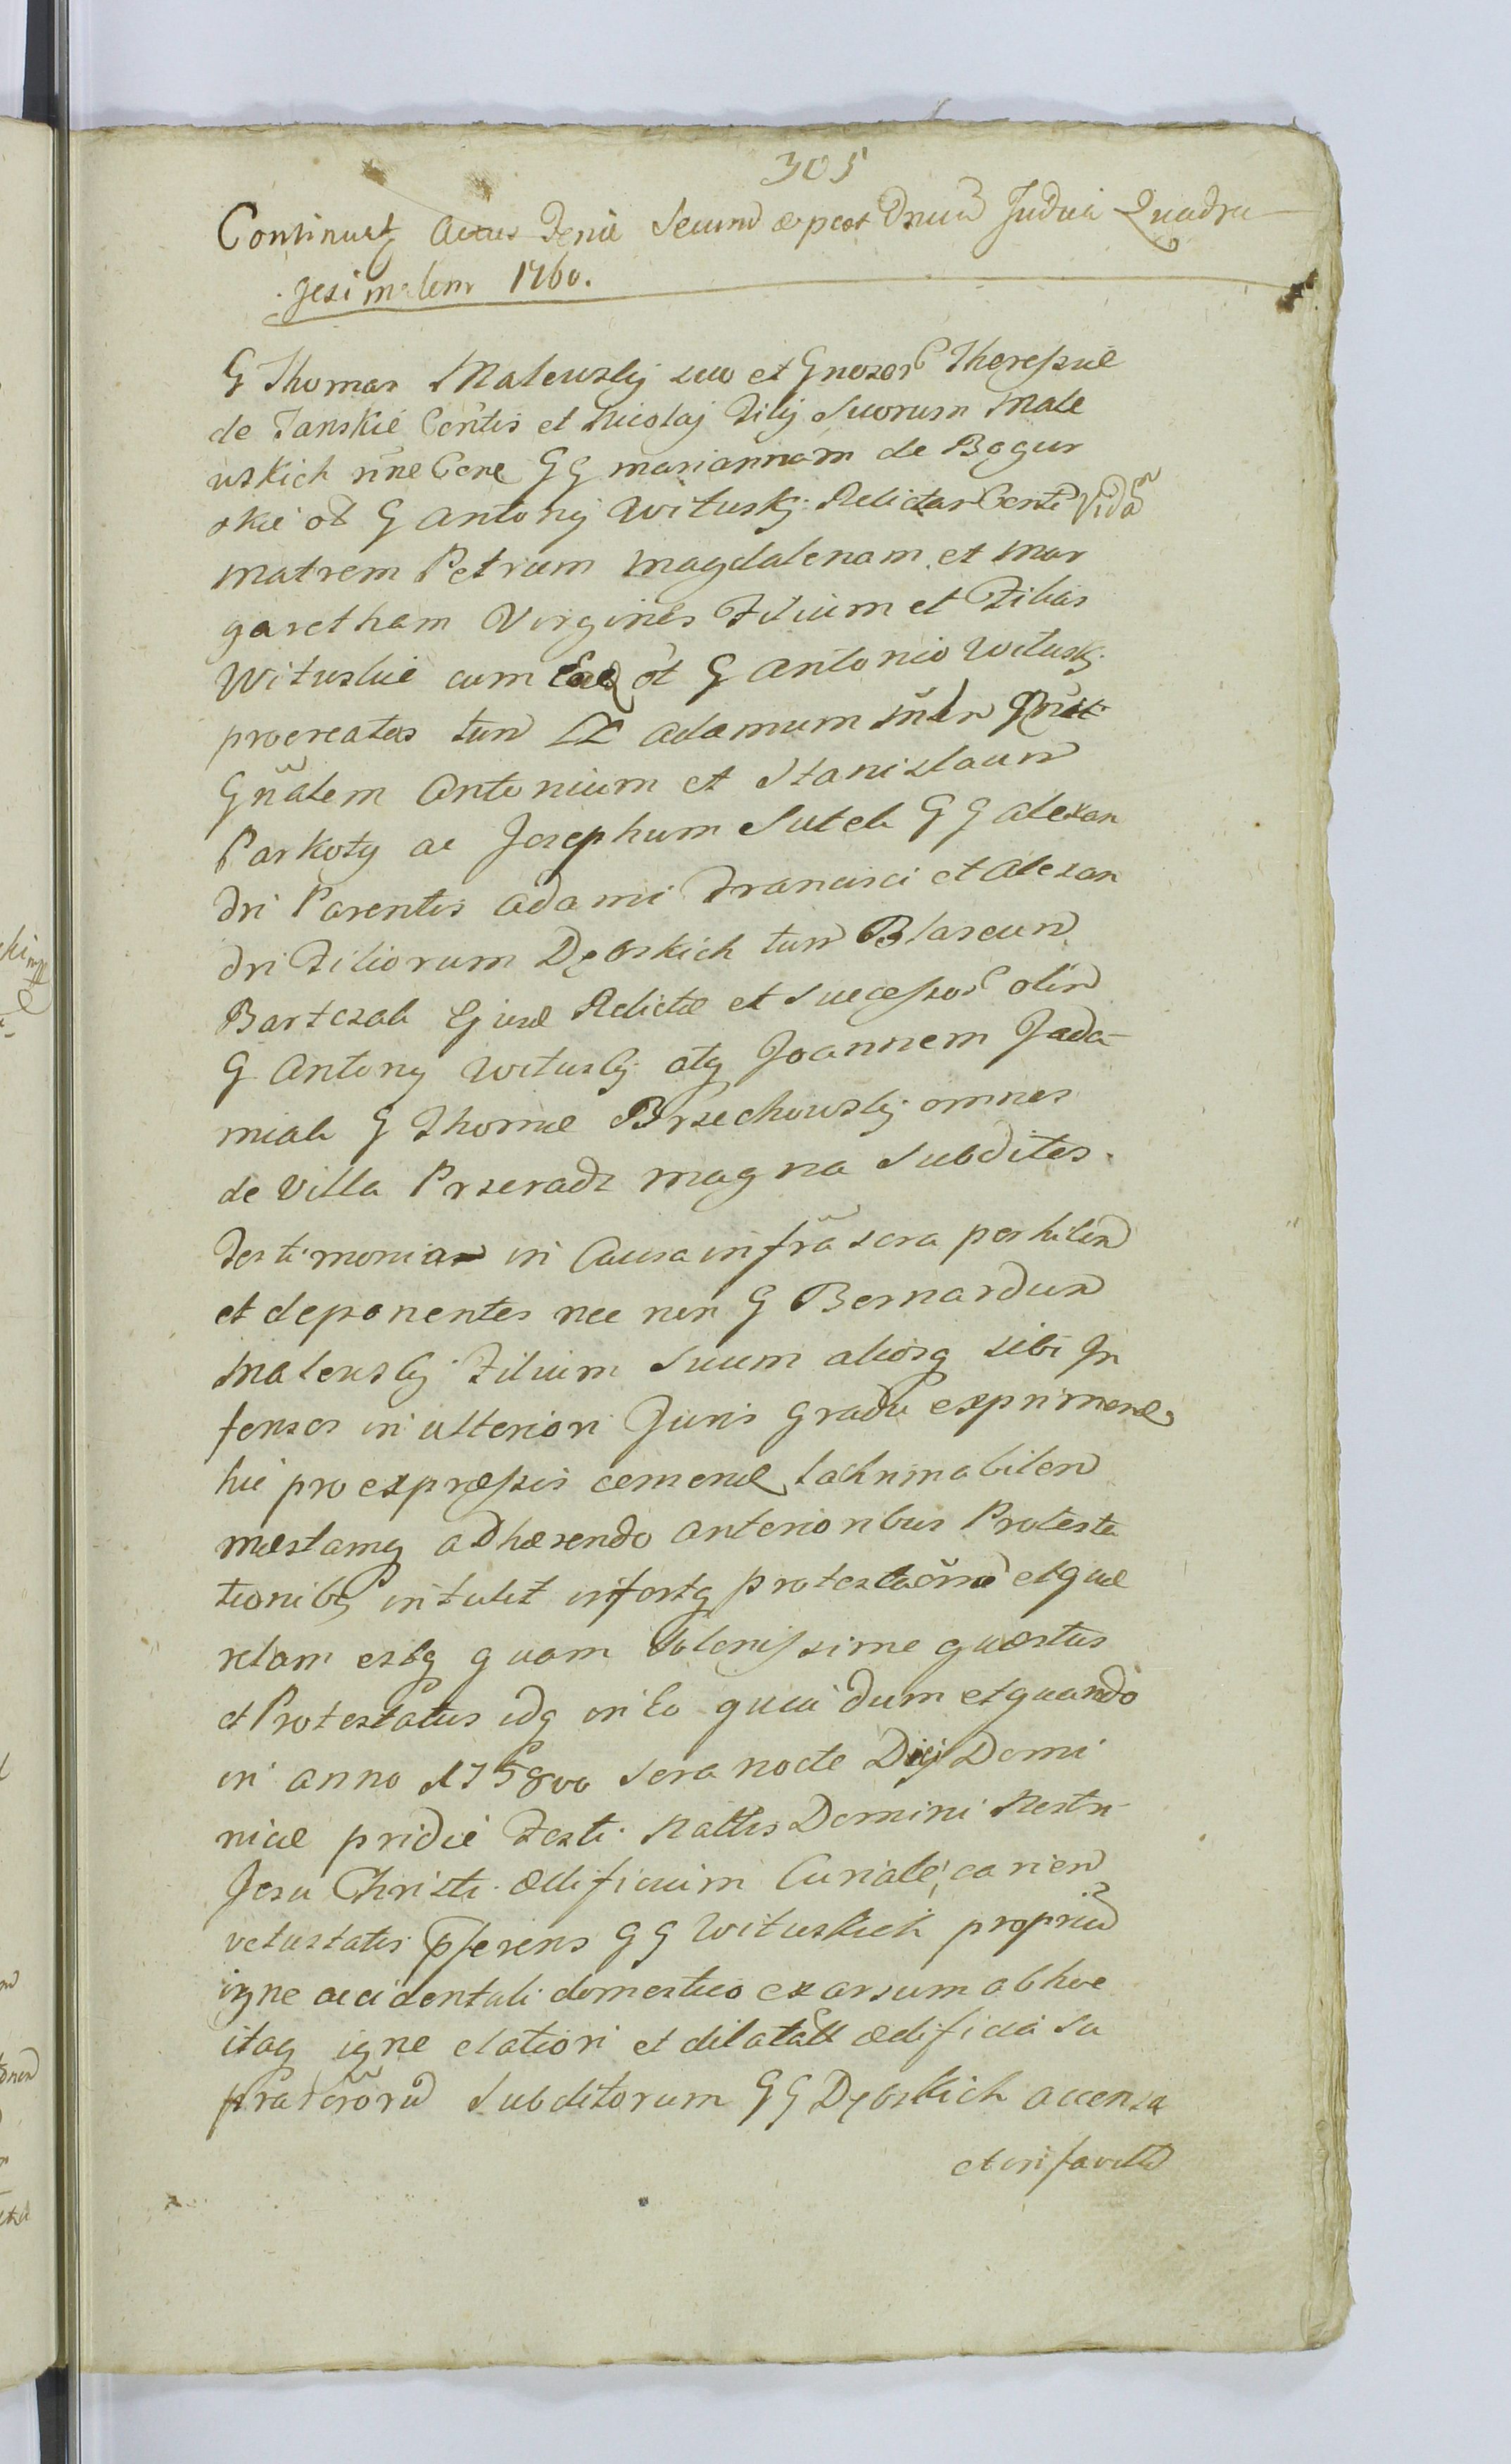 305
Continuatq Actus Feriæ Secundæ post Dnicā Judica Quadra
gesimalem 1760.
G Thomas Maleuskj suo et Gnosor Theressiæ
de Janskie Contis et Nicolaj Filij Suorum Male
uskich nne Cone GG mariannam de Bogur
skie ol G Antonij Wituskj Relictar Contē Vidā
matrem Petrum Magdalenam et Mar
garetham Virgines Filium et Filias
Wituskie cum Eaq ol G Antonio Wituskj
procreatas tum LL Adamum
Gnalem Antonium et Stanislaum
Parkoty ac Josephum Sutek GG Alexan
dri Parentis Adami Francisci et Alexan
dri Filiorum Dębskich tum Blaseum
Bartczak Ejusd Relictæ et Successor olim
G Antonij Wituskj atq Joannem Jada
miak G Thomæ Brzechowskj omnes
de Villa Przeradz magna Subditos.
Testimonia in Causa infra scra perhiben
et deponentes nec non G Bernardum
Maleuskj Filium Suum aliosq sibi In
fensos in ulteriori Juris gradu exprimend
hic pro expressis cemend lachrimabilem
mæstamq adhærendo anterioribus Protesta
tionibq intulit infertq protestaōnē et quæ
relam estq quam Solenissime quæstus
et Protestatus idq in Eo quia dum et quando
in anno 1758vo sera nocte Diei Domi
nicæ pridie Festi Nattis Domini Nostri
Jesu Christi ædificium Curiale cariem
vetustatis pferens GG Wituskich propriū
igne accidentali domestico exarsum ab hoc
itaq igne elatiori et dilatatt ædificia su
prascrōrū Subditorum GG Dębskich accensa
et in favillā